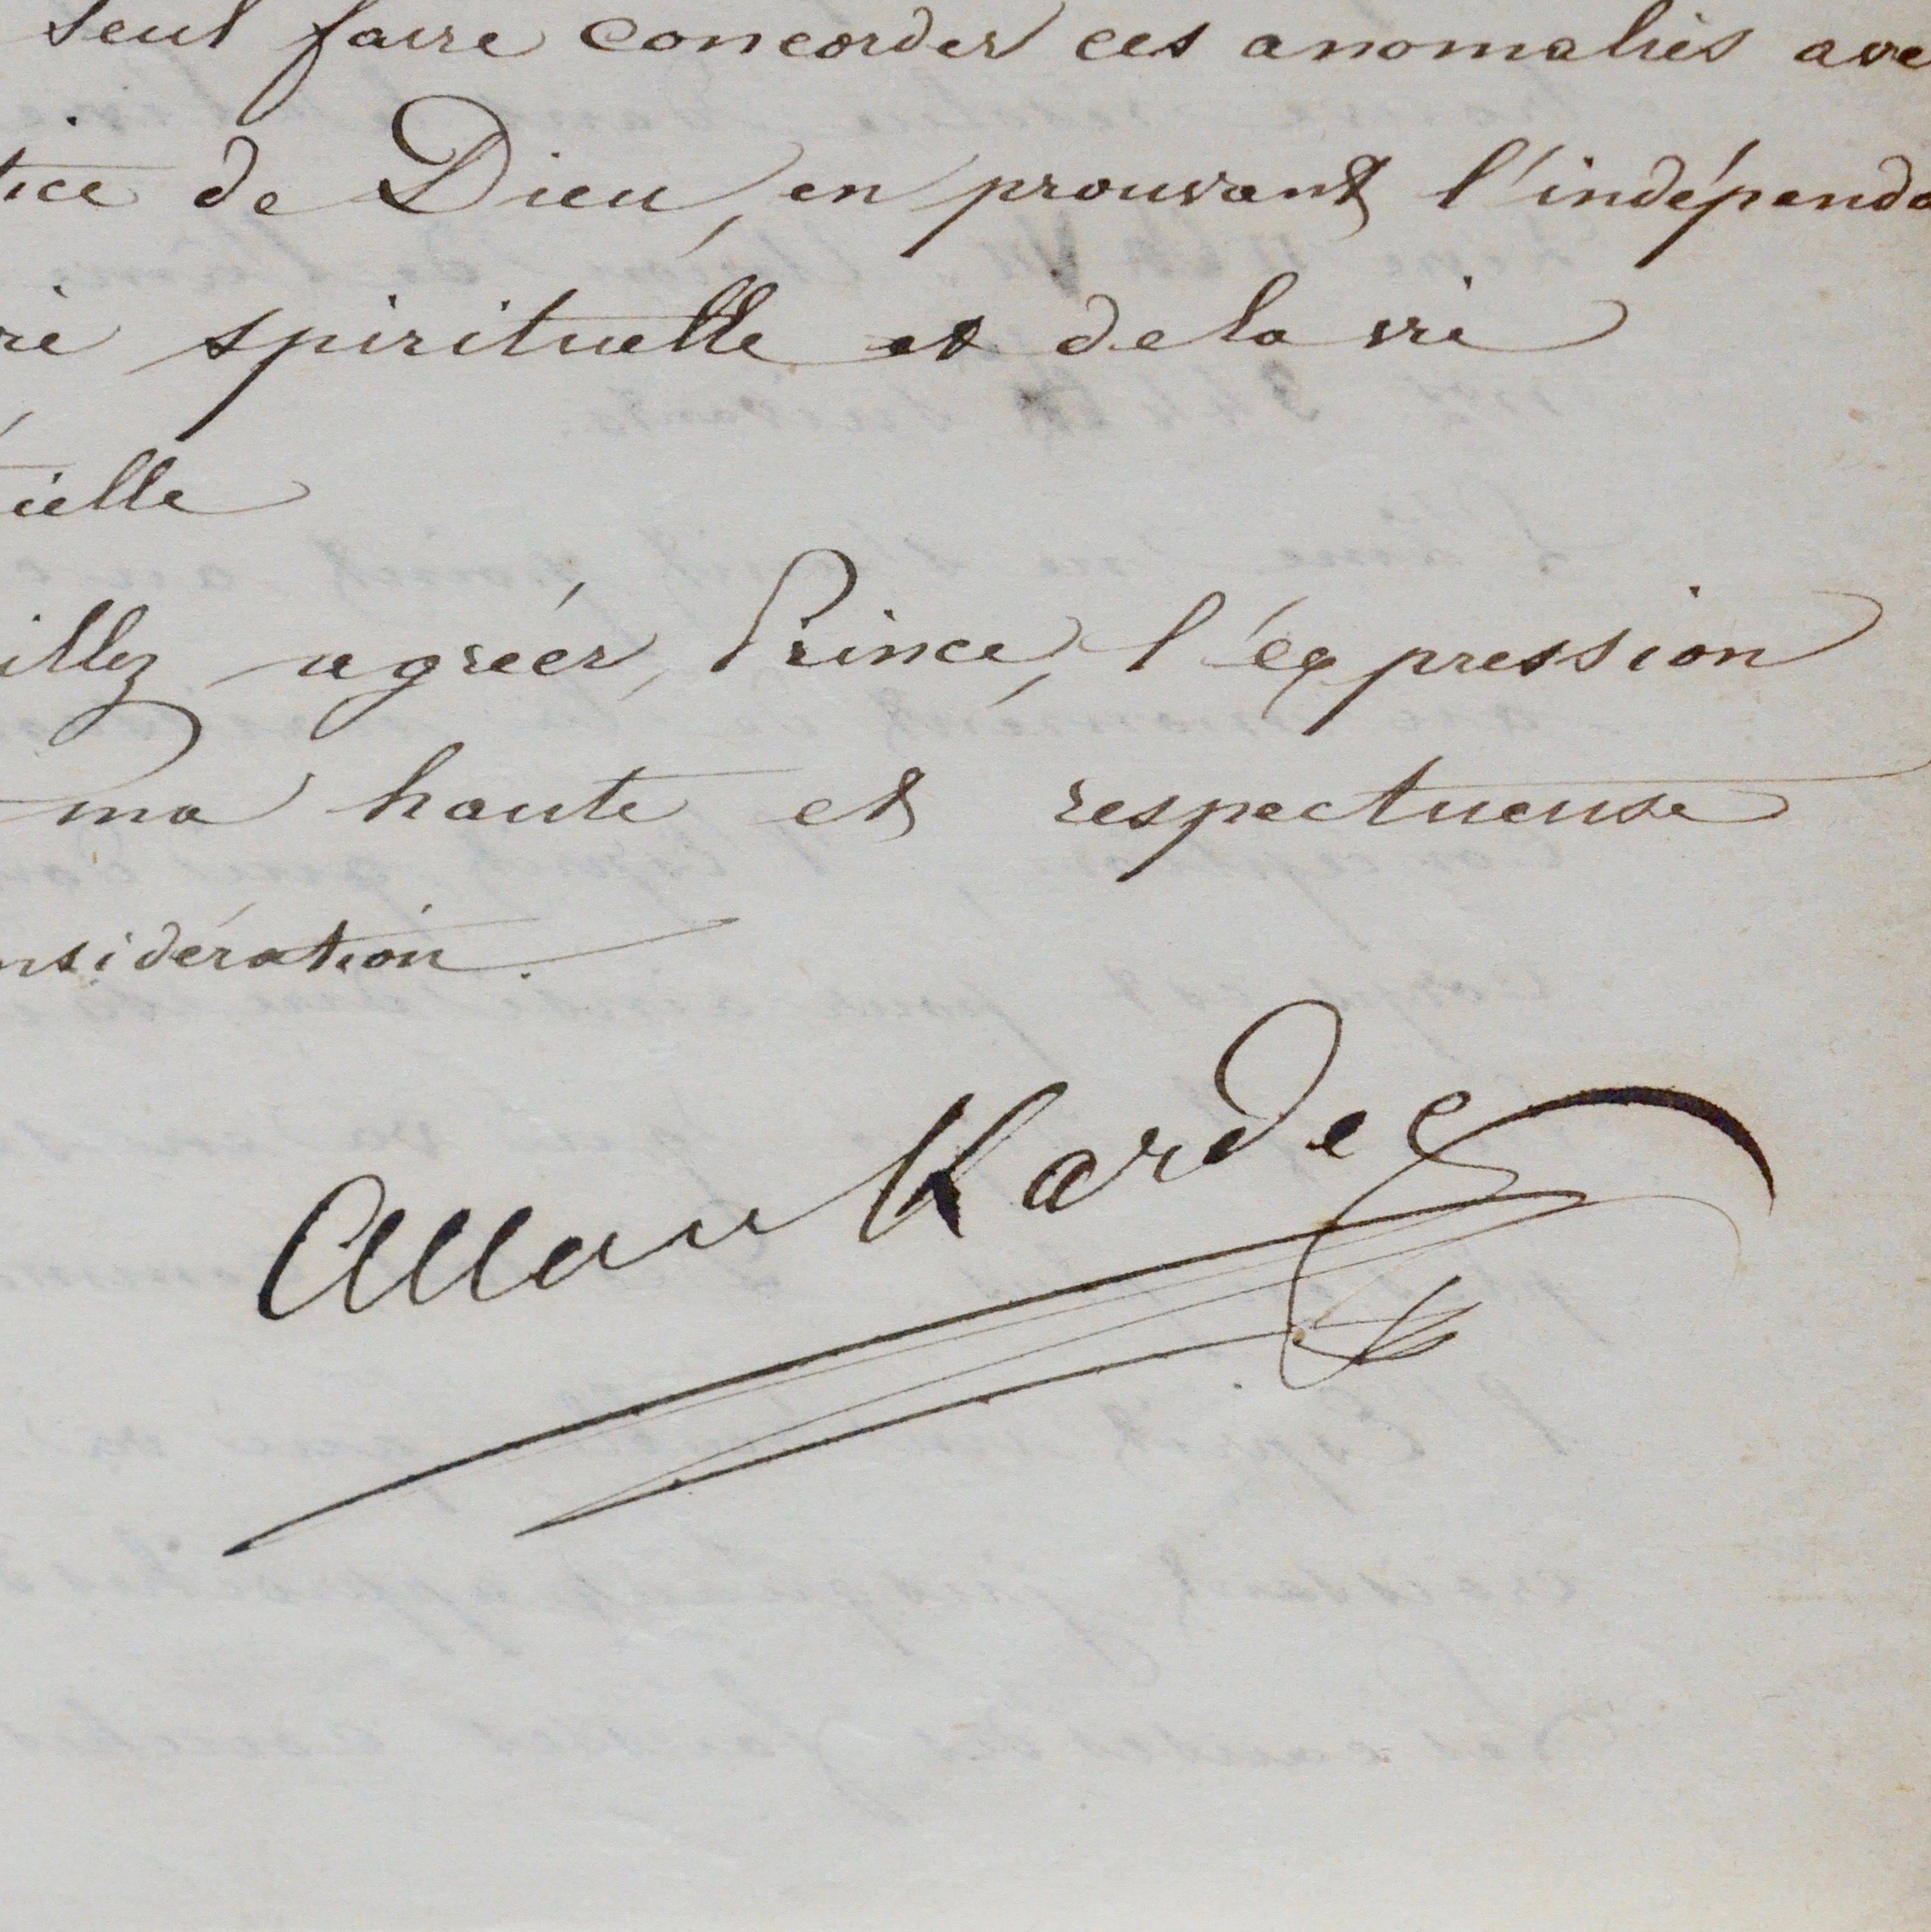 seul faire concorder ces anomalies ave
tice de Dieu, en prouvant l'indépenda
vie spirituelle et de la vie
ielle
illez agréer, Prince, l'expression
ma haute et respectueuse
nsidération.
Allan Kardec